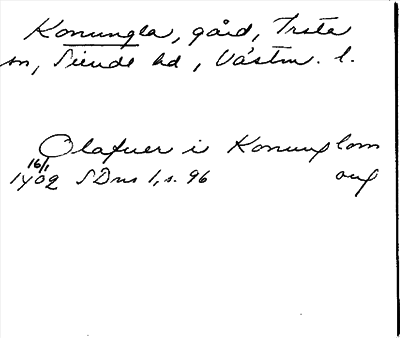 Konungla, gård, Irsta
sn, Siende hd, Västm. l.
Olafuer i Konunglom
16/1
1402 SDns 1, s. 96 avg